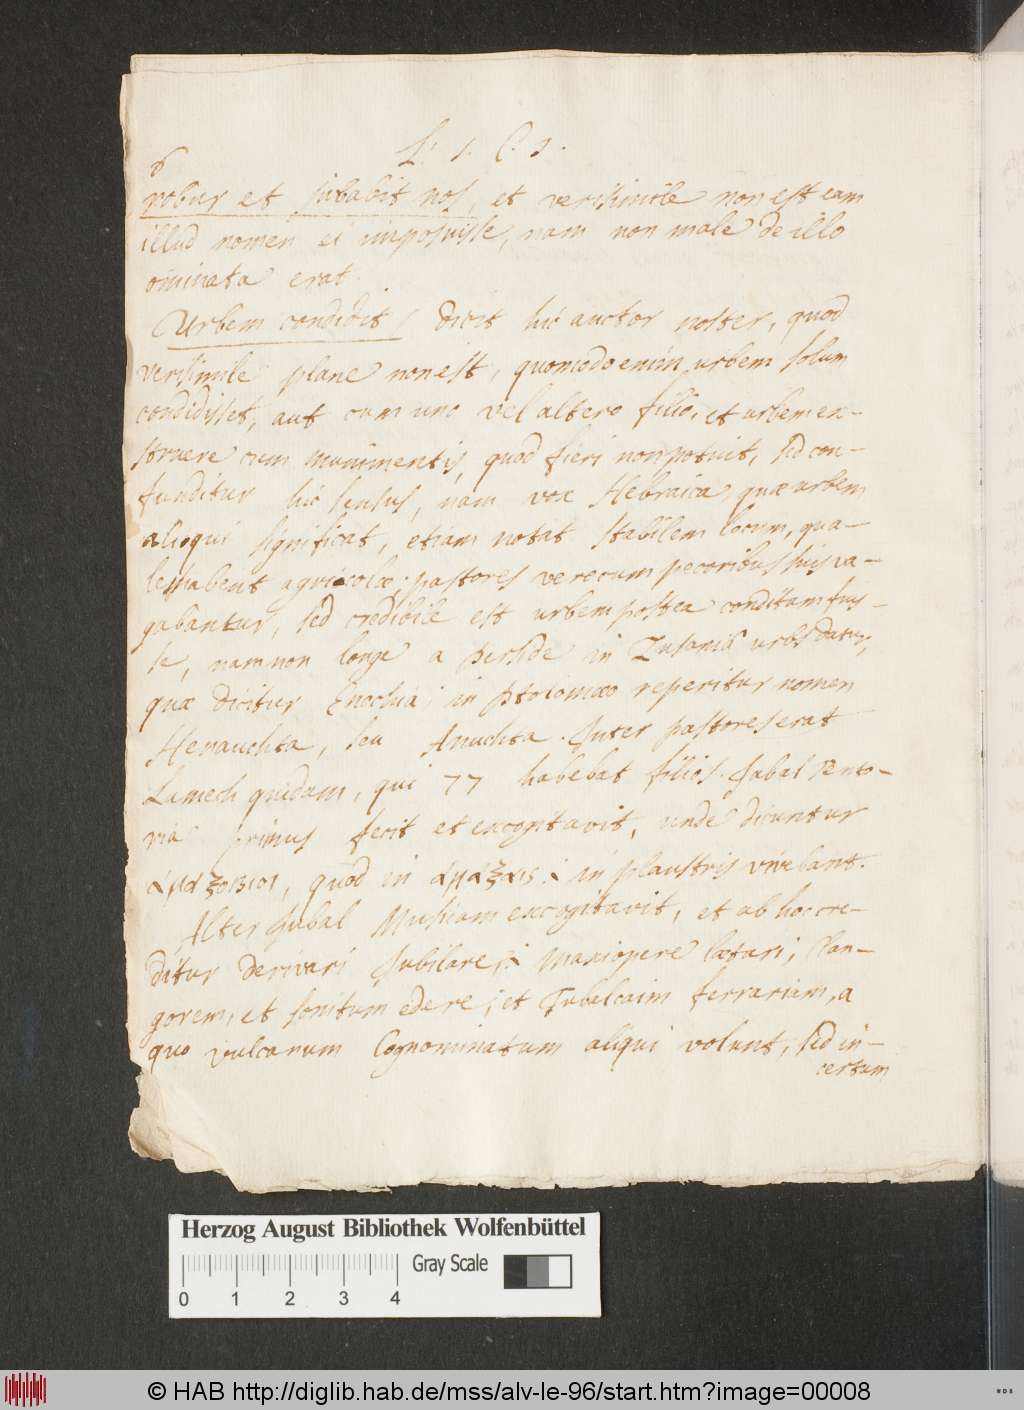 L. 1. C. 3.
6
robur et subabit nos, et verisimile non est eam
illud nomen ei imposuisse, nam non male de illo
ominata erat.
Urbem condidit / dicit hic auctor noster, quod
verisimile plane non est, quomodo enim urbem solum
condidisset, aut cum uno vel altero filio, et urbem ex-
struere cum munimentis, quod fieri non potuit, sed con-
funditur hic sensus, nam vox Hebraica, quae urbem
alioqui significat, etiam notat stabilem locum, qua-
les habent agricolae; pastores vero cum pecoribus suis va-
gabantur, sed credibile est urbem postea conditam fuis-
se, nam non longe a Perside in Susania urbs datur,
quae dicitur Enochia; in Ptolomaeo reperitur nomen
Henauchta, seu Anuchta. Inter pastores erat
Lamech quidam, qui 77 habebat filios. Jabal Tento-
ria primus fecit et excogitavit, unde dicuntur
ἁμαξοβιοι, quod in ἁμαξαις .i. in plaustris vivebant.
Alter Jubal Musicam excogitavit, et ab hoc cre-
ditur derivari Jubilare, .i. Maxiopere laetari, Clan-
gorem, et sonitum edere; et Tubalcaim ferrariam, a
quo vulcanum Cognominatum aliqui volunt, sed in-
certum
Herzog August Bibliothek Wolfenbüttel
Gray Scale
0 1 2 3 4
© HAB http://diglib.hab.de/mss/alv-le-96/start.htm?image=00008